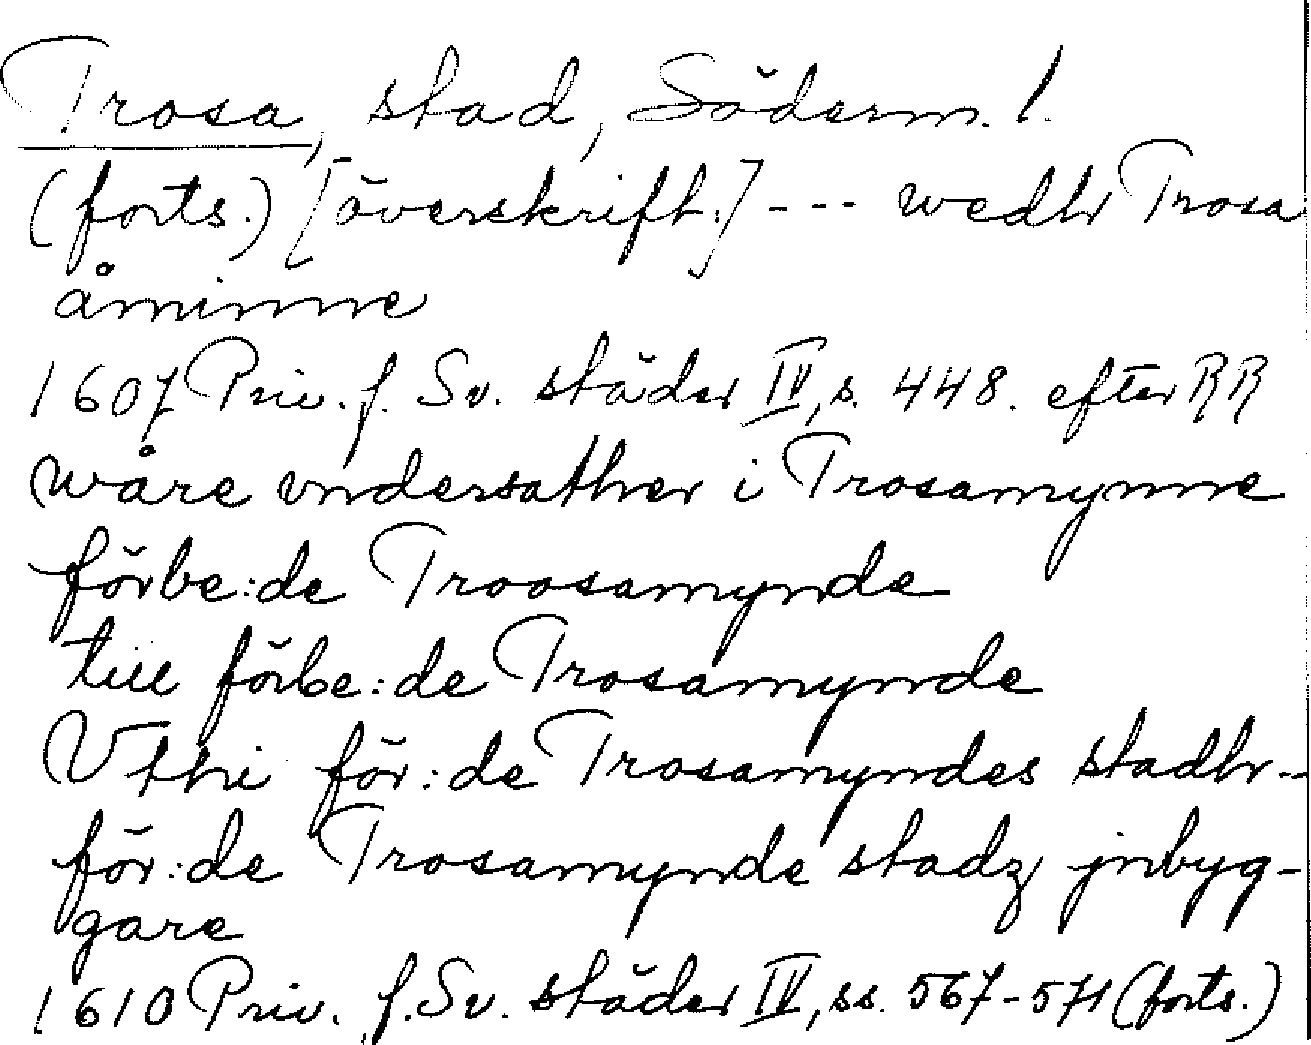 Trosa, stad, Söderm. l.
(forts.) [överskrift:] --- wedhr Trosa
åminne
1607 Priv. f. Sv. städer IV, s. 448. efter RR
wåre vndersather i Trosamynne
förbe:de Troosamynde
till förbe:de Trosamynde
Vthi för:de Trosamyndes stadhr-
för:de Trosamynde stadz jnbyg-
gare
1610 Priv. f. Sv. städer IV, ss. 567-571 (forts.)